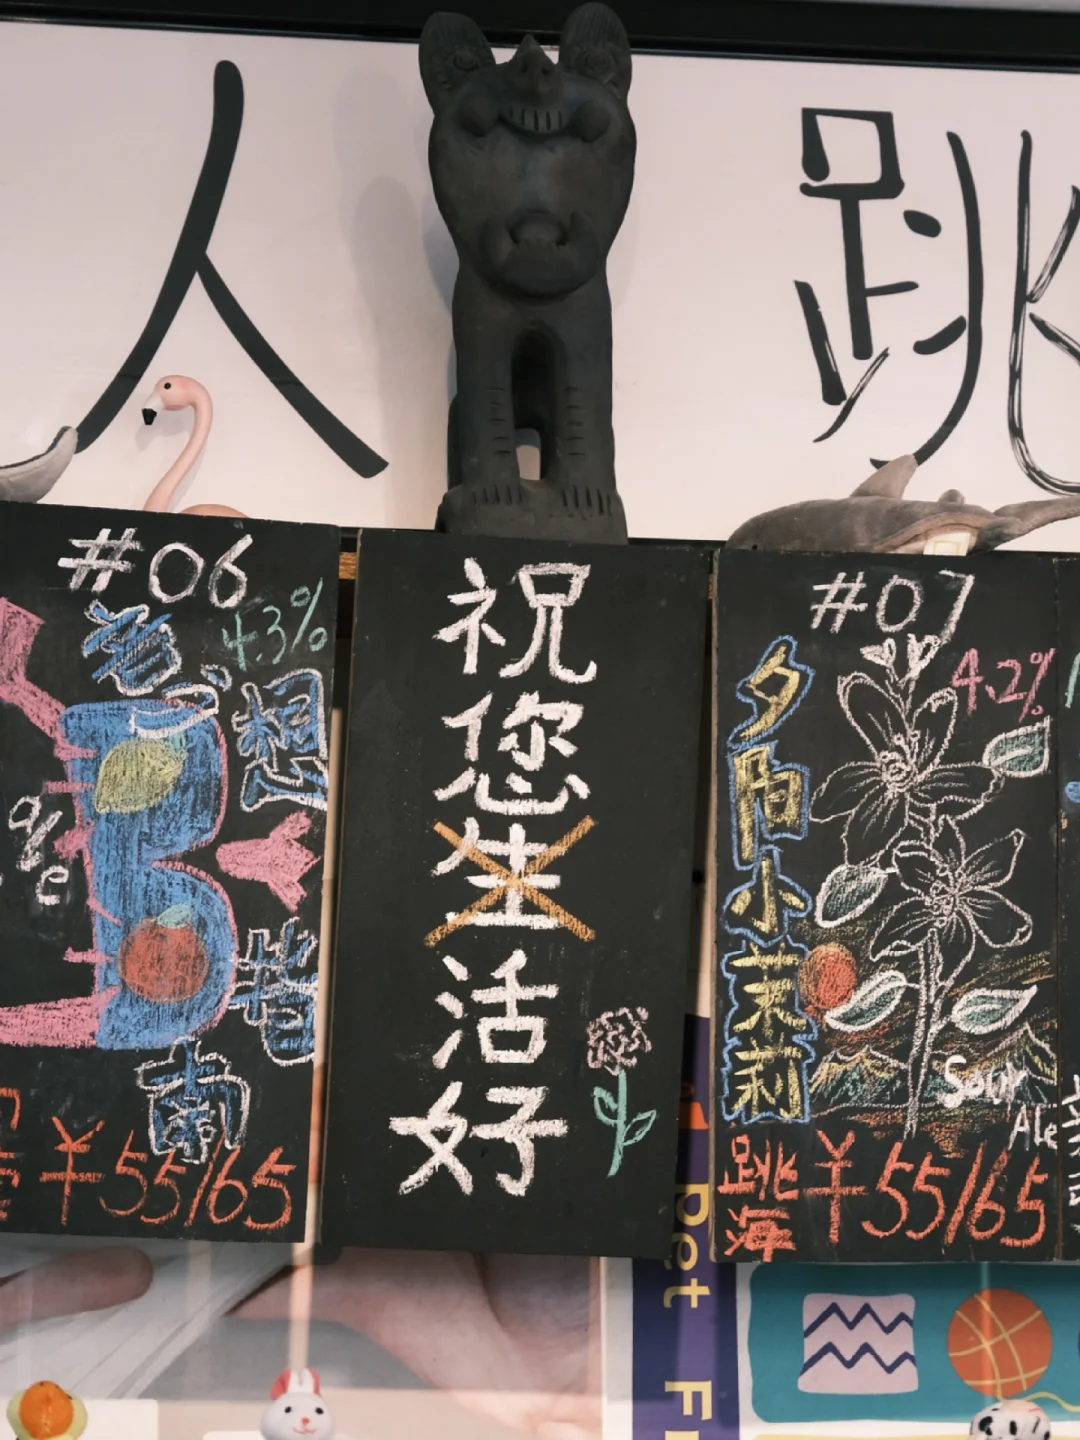 人
跳
#06
4.3%
想
南
¥55/65
祝
您
生
活
好
#07
4.2%
夕
阳
小
茉
莉
Sour
Ale
跳海
¥55/65
Pet